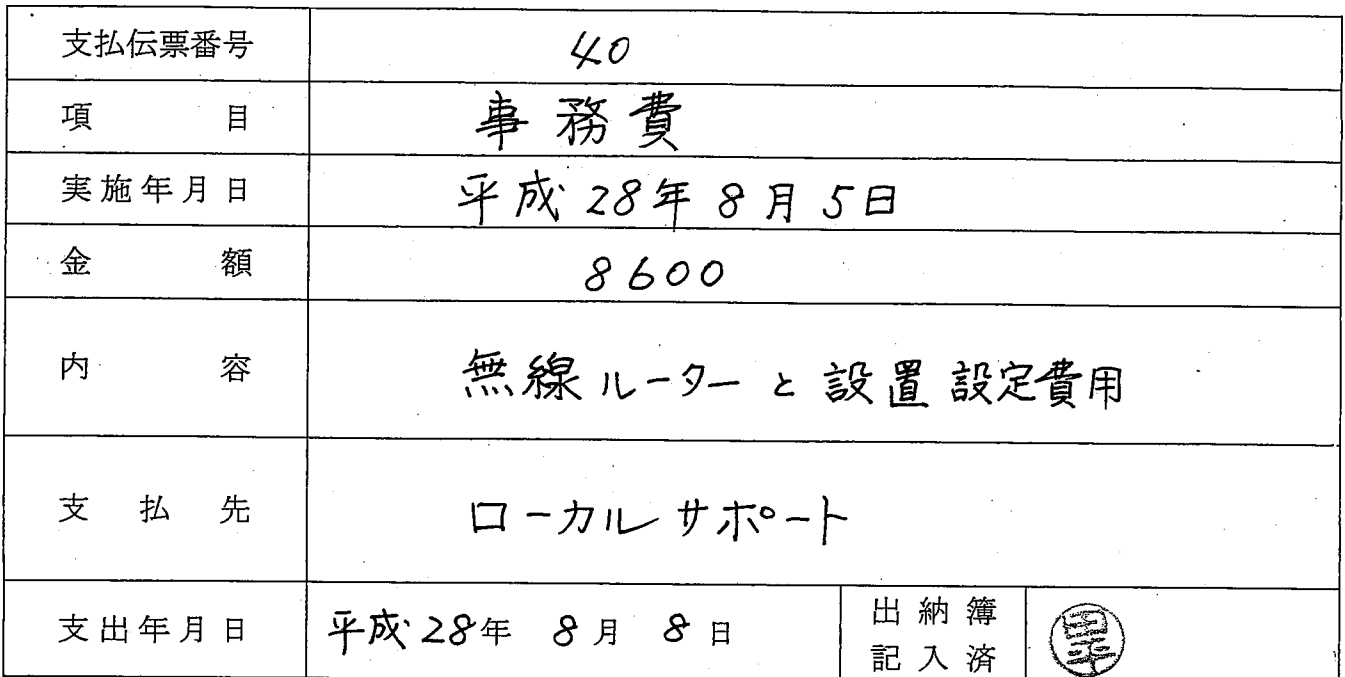 支払伝票番号 40
項目 事務費
実施年月日 平成28年8月5日
金額 8600
内容 無線ルーターと設置設定費用
支払先 ローカルサポート
支出年月日 平成28年 8月 8日 出納簿
記入済